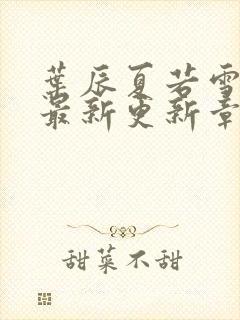 葉辰夏若雪
最新更新章
甜菜不甜